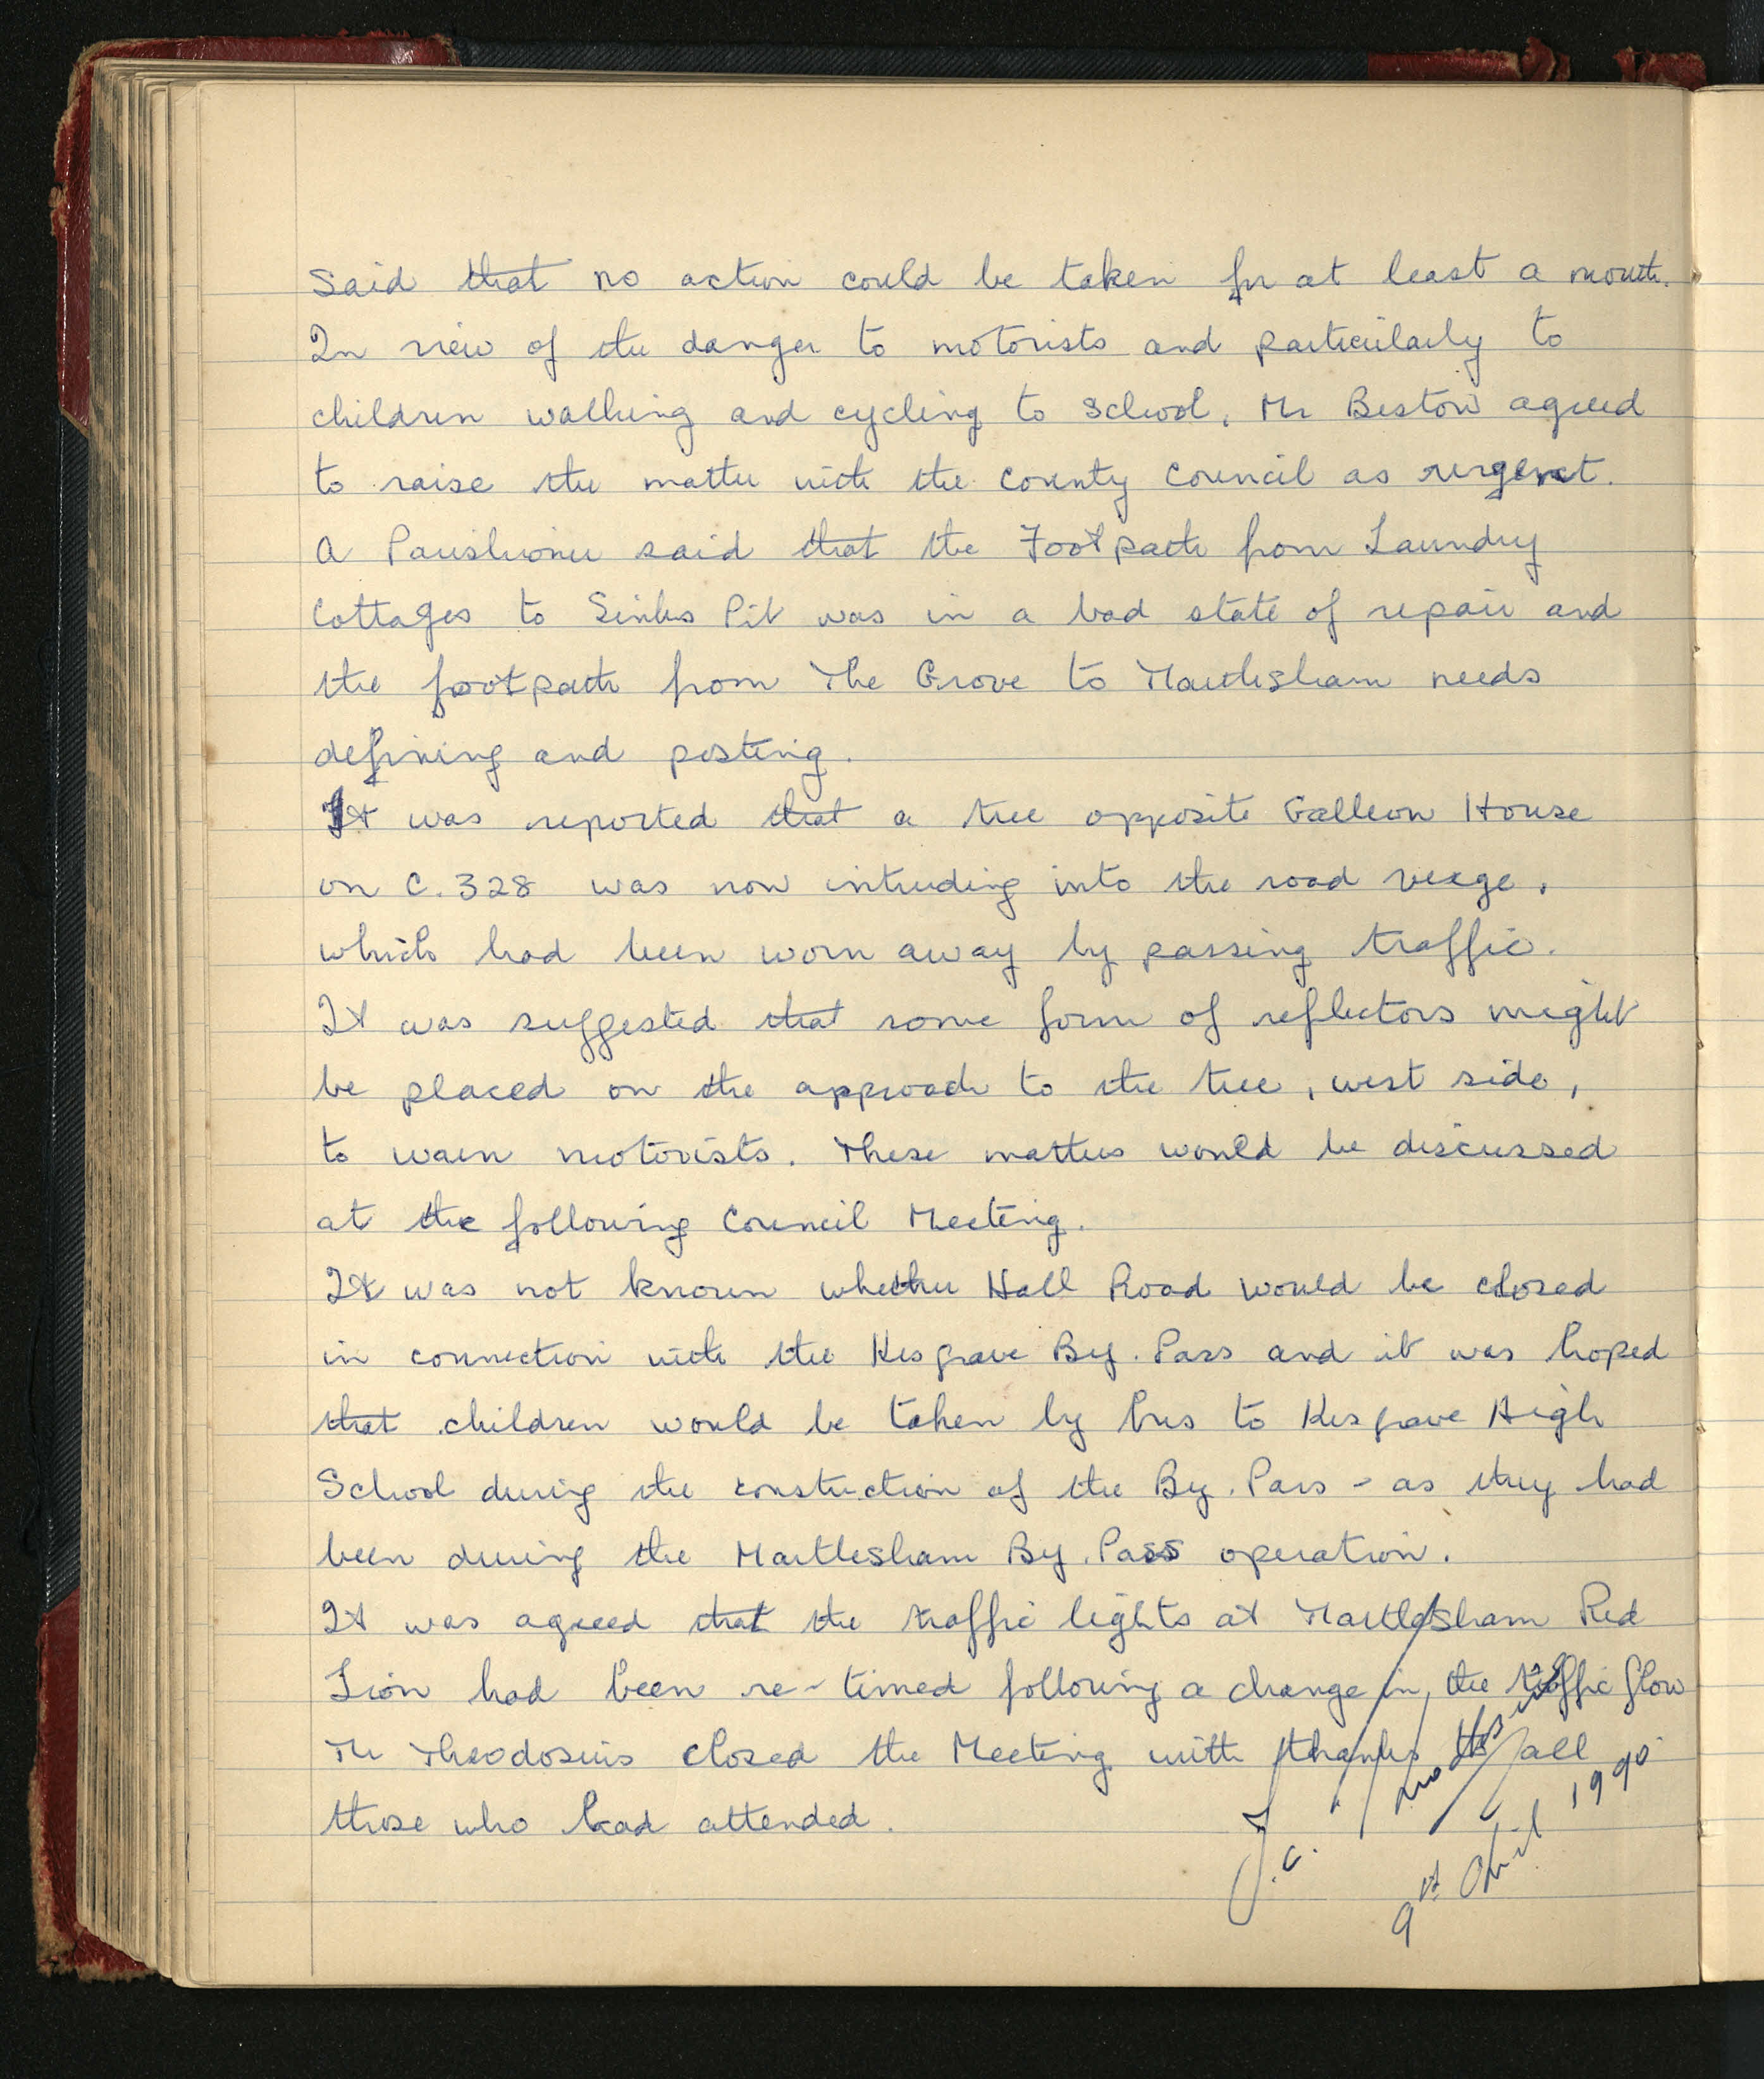 said that no action could be taken for at least a month.
In view of the danger to motorists and particularly to
children walking and cycling to school, Mr Beston agreed
to raise the matter with the County Council as urgent.
A Parishioner said that the Footpath from Laundry
Cottages to Sinks Pit was in a bad state of repair and
the footpath from The Grove to Martlesham needs
defining and posting.
It was reported that a tree opposite Galleon House
on C.328 was now intruding into the road verge,
which had been worn away by passing traffic.
It was suggested that some form of reflectors might
be placed on the approach to the tree, west side,
to warn motorists. These matters would be discussed
at the following Council Meeting.
It was not known whether Hall Road would be closed
in connection with the Kesgrave By.Pass and it was hoped
that children would be taken by bus to Kesgrave High
School during the construction of the By.Pass - as they had
been during the Martlesham By.Pass operation.
It was agreed that the traffic lights at Martlesham Red
Lion had been re-timed following a change in the traffic flow
Mr Theodosius closed the Meeting with thanks to all
those who had attended.
9th April 1990